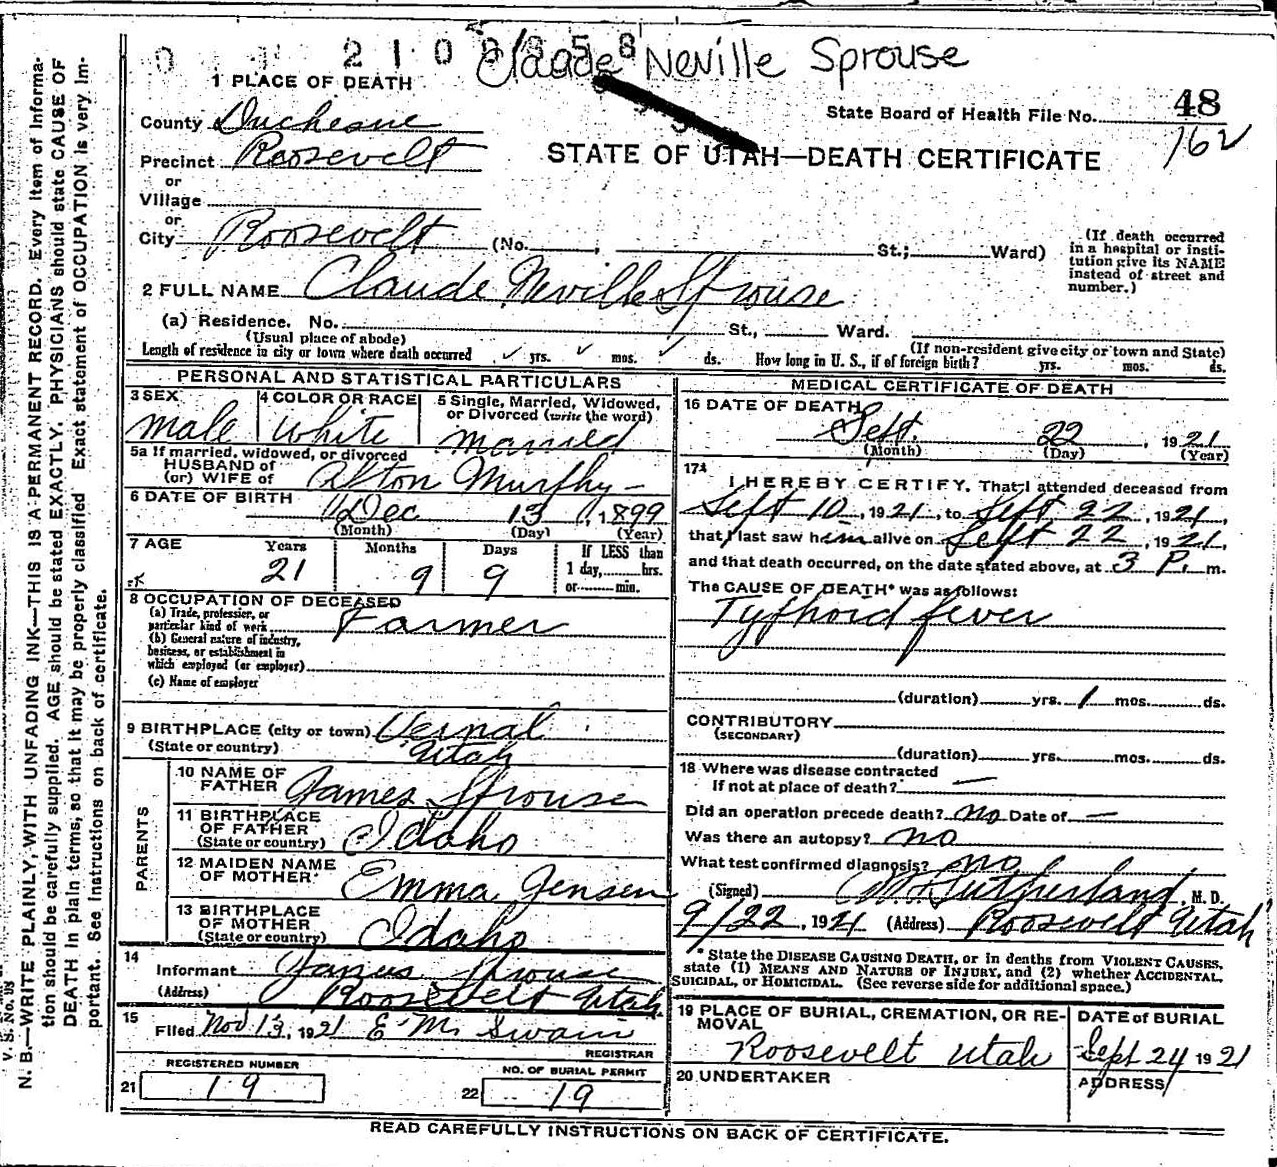 0 1 2 1 0 0 8 5 8
Claude Neville Sprouse
1 PLACE OF DEATH
State Board of Health File No. 48
162
County Duchesne
Precinct Roosevelt
STATE OF UTAH—DEATH CERTIFICATE
or
Village
or
City Roosevelt (No. , St.; Ward)
(If death occurred in a hospital or institution give its NAME instead of street and number.)
2 FULL NAME Claude Neville Sprouse
(a) Residence. No. St., Ward.
(Usual place of abode) (If non-resident give city or town and State)
Length of residence in city or town where death occurred ✓ yrs. ✓ mos. ✓ ds. How long in U. S., if of foreign birth? yrs. mos. ds.
PERSONAL AND STATISTICAL PARTICULARS
3 SEX 4 COLOR OR RACE 5 Single, Married, Widowed,
or Divorced (write the word)
Male White Married
5a If married, widowed, or divorced
HUSBAND of
(or) WIFE of Afton Murphy –
6 DATE OF BIRTH
Dec 13, 1899
(Month) (Day) (Year)
7 AGE Years Months Days If LESS than
21 9 9 1 day, hrs.
or min.
8 OCCUPATION OF DECEASED
(a) Trade, profession, or
particular kind of work Farmer
(b) General nature of industry,
business, or establishment in
which employed (or employer)
(c) Name of employer
9 BIRTHPLACE (city or town) Vernal
(State or country) Utah
PARENTS
10 NAME OF
FATHER James Sprouse
11 BIRTHPLACE
OF FATHER
(State or country) Idaho
12 MAIDEN NAME
OF MOTHER Emma Jensen
13 BIRTHPLACE
OF MOTHER
(State or country) Idaho
14
Informant James Sprouse
(Address) Roosevelt Utah
15
Filed Nov 13, 1921 E M Swain
REGISTRAR
REGISTERED NUMBER NO. OF BURIAL PERMIT
21 19 22 19
MEDICAL CERTIFICATE OF DEATH
16 DATE OF DEATH
Sept. 22, 1921
(Month) (Day) (Year)
17
I HEREBY CERTIFY, That I attended deceased from
Sept 10, 1921, to Sept 22, 1921,
that I last saw him alive on Sept 22, 1921,
and that death occurred, on the date stated above, at 3 P. m.
The CAUSE OF DEATH* was as follows:
Typhoid fever
(duration) yrs. 1 mos. ds.
CONTRIBUTORY
(SECONDARY)
(duration) yrs. mos. ds.
18 Where was disease contracted
If not at place of death? —
Did an operation precede death? no Date of —
Was there an autopsy? no
What test confirmed diagnosis? no
(Signed) Sutherland, M. D.
9/22, 1921 (Address) Roosevelt Utah
* State the DISEASE CAUSING DEATH, or in deaths from VIOLENT CAUSES,
state (1) MEANS AND NATURE OF INJURY, and (2) whether ACCIDENTAL,
SUICIDAL, or HOMICIDAL. (See reverse side for additional space.)
19 PLACE OF BURIAL, CREMATION, OR RE-
MOVAL
Roosevelt Utah
DATE of BURIAL
Sept 24 1921
20 UNDERTAKER ADDRESS
READ CAREFULLY INSTRUCTIONS ON BACK OF CERTIFICATE.
V. S. No.
N. B.—WRITE PLAINLY, WITH UNFADING INK—THIS IS A PERMANENT RECORD. Every item of informa-
tion should be carefully supplied. AGE should be stated EXACTLY. PHYSICIANS should state CAUSE OF
DEATH in plain terms, so that it may be properly classified. Exact statement of OCCUPATION is very im-
portant. See instructions on back of certificate.